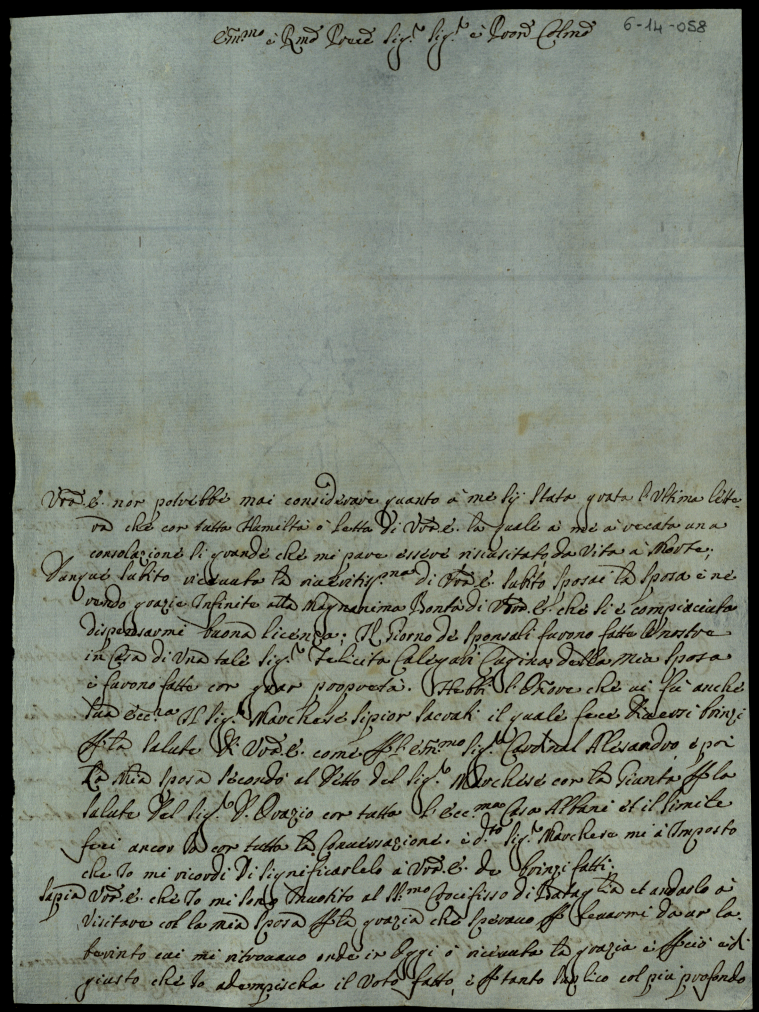 6-14-058
Em.mo è Rmo Prece Sig.r Sig.r è Pron Colmo
Vra.E. non potrebbe mai considerare quanto à me sij stata grata l'ultima lette-
ra che con tutta Humiltà ò letta di Vra.E. la quale à me à recata una
consolazione si grande che mi pare essere risuscitato da Vita à Morte;
Dunque subito riceuuta la di Vra.E. subito sposai la sposa è ne
rendo grazie Infinite alla Magnanima Bontà di Vra.E. che si è compiaciuta
dispensarmi buona licenza; Il Giorno de sponsali furono fatte le nostre
in Casa di Una tale Sig.ra Felicita Calegari Cugina della Mia Sposa
è furono fatte con gran proprietà. Hebbi l'Onore che ui fù anche
Sua Ecc.za Il Sig.r Marchese Sipion Sacrati il quale fece Diuersi brinzi
p la salute di Vra.E. come p l'Em.mo Sig.r Cardinal Alesandro, è poi
La Mia Sposa secondò al Detto del Sig.r Marchese con la Gianta p la
salute Del Sig.r D. Orazio con tutta l'Ecc.ma Casa Albani et il simile
feci ancor Io con tutta la Conuersazione, è d.to Sig.r Marchese mi à Imposto
che Io mi ricordi Di significarlelo à Vra.E. de brinzi fatti;
Sapia Vra.E. che Io mi sono Inuotito al SS.mo Crocifisso di et andarlo à
Visitare col la mia Sposa p la grazia che sperauo p leuarmi da un la-
berinto cui mi ritrouauo onde in Oggi ò riceuuta la grazia è p ciò è di
giusto che Io adempischa il Voto fatto, è p tanto suplico col più profondo